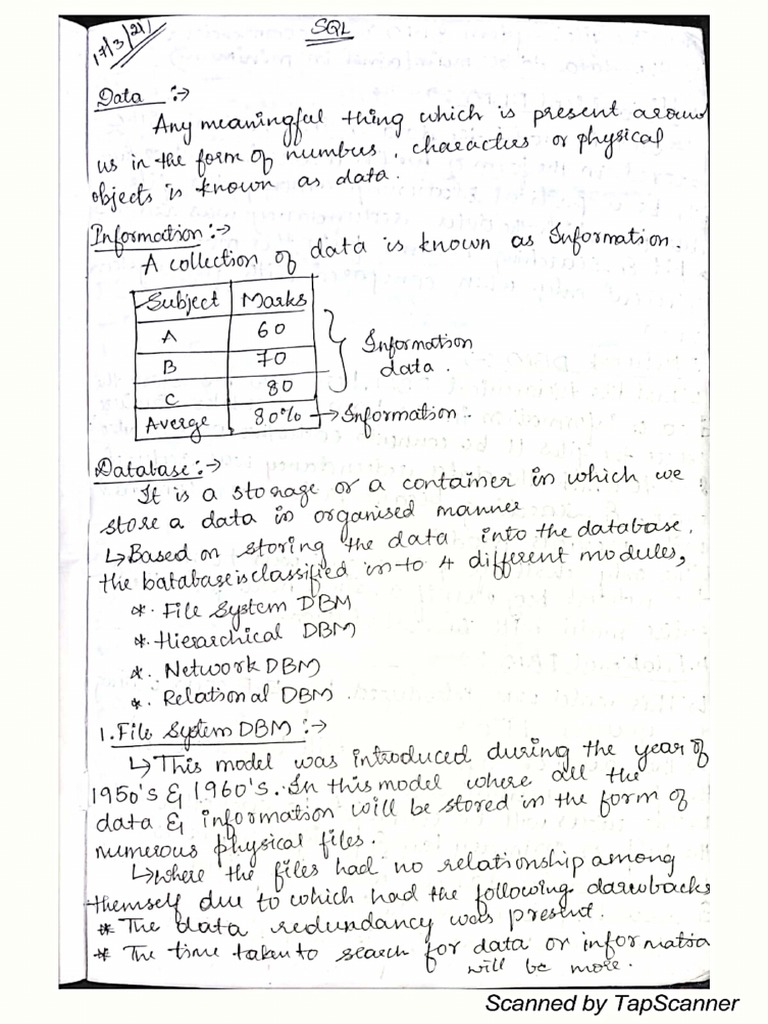 17/3/21
SQL
Data :->
Any meaningful thing which is present aroun
us in the form of numbus, charactus or physical
objects is known as data.
Information :->
A collection of data is known as Information.
Subject Marks
A 60
B 70
C 80
Averge 80% -> Information.
Information
data.
Database :->
It is a storage or a container in which we
store a data in organised manner
↳ Based on storing the data into the database,
the batabase is classified in to 4 different modules,
*. File System DBM
*. Hierarchical DBM
*. Network DBM
*. Relational DBM
1. File System DBM :->
↳ This model was introduced during the year of
1950's & 1960's. In this model where all the
data & information will be stored in the form of
numerous physical files.
↳ where the files had no relationship among
themself due to which had the following darwbacks
* The data redundancy was present.
* The time taken to search for data or informatio
will be more.
Scanned by TapScanner